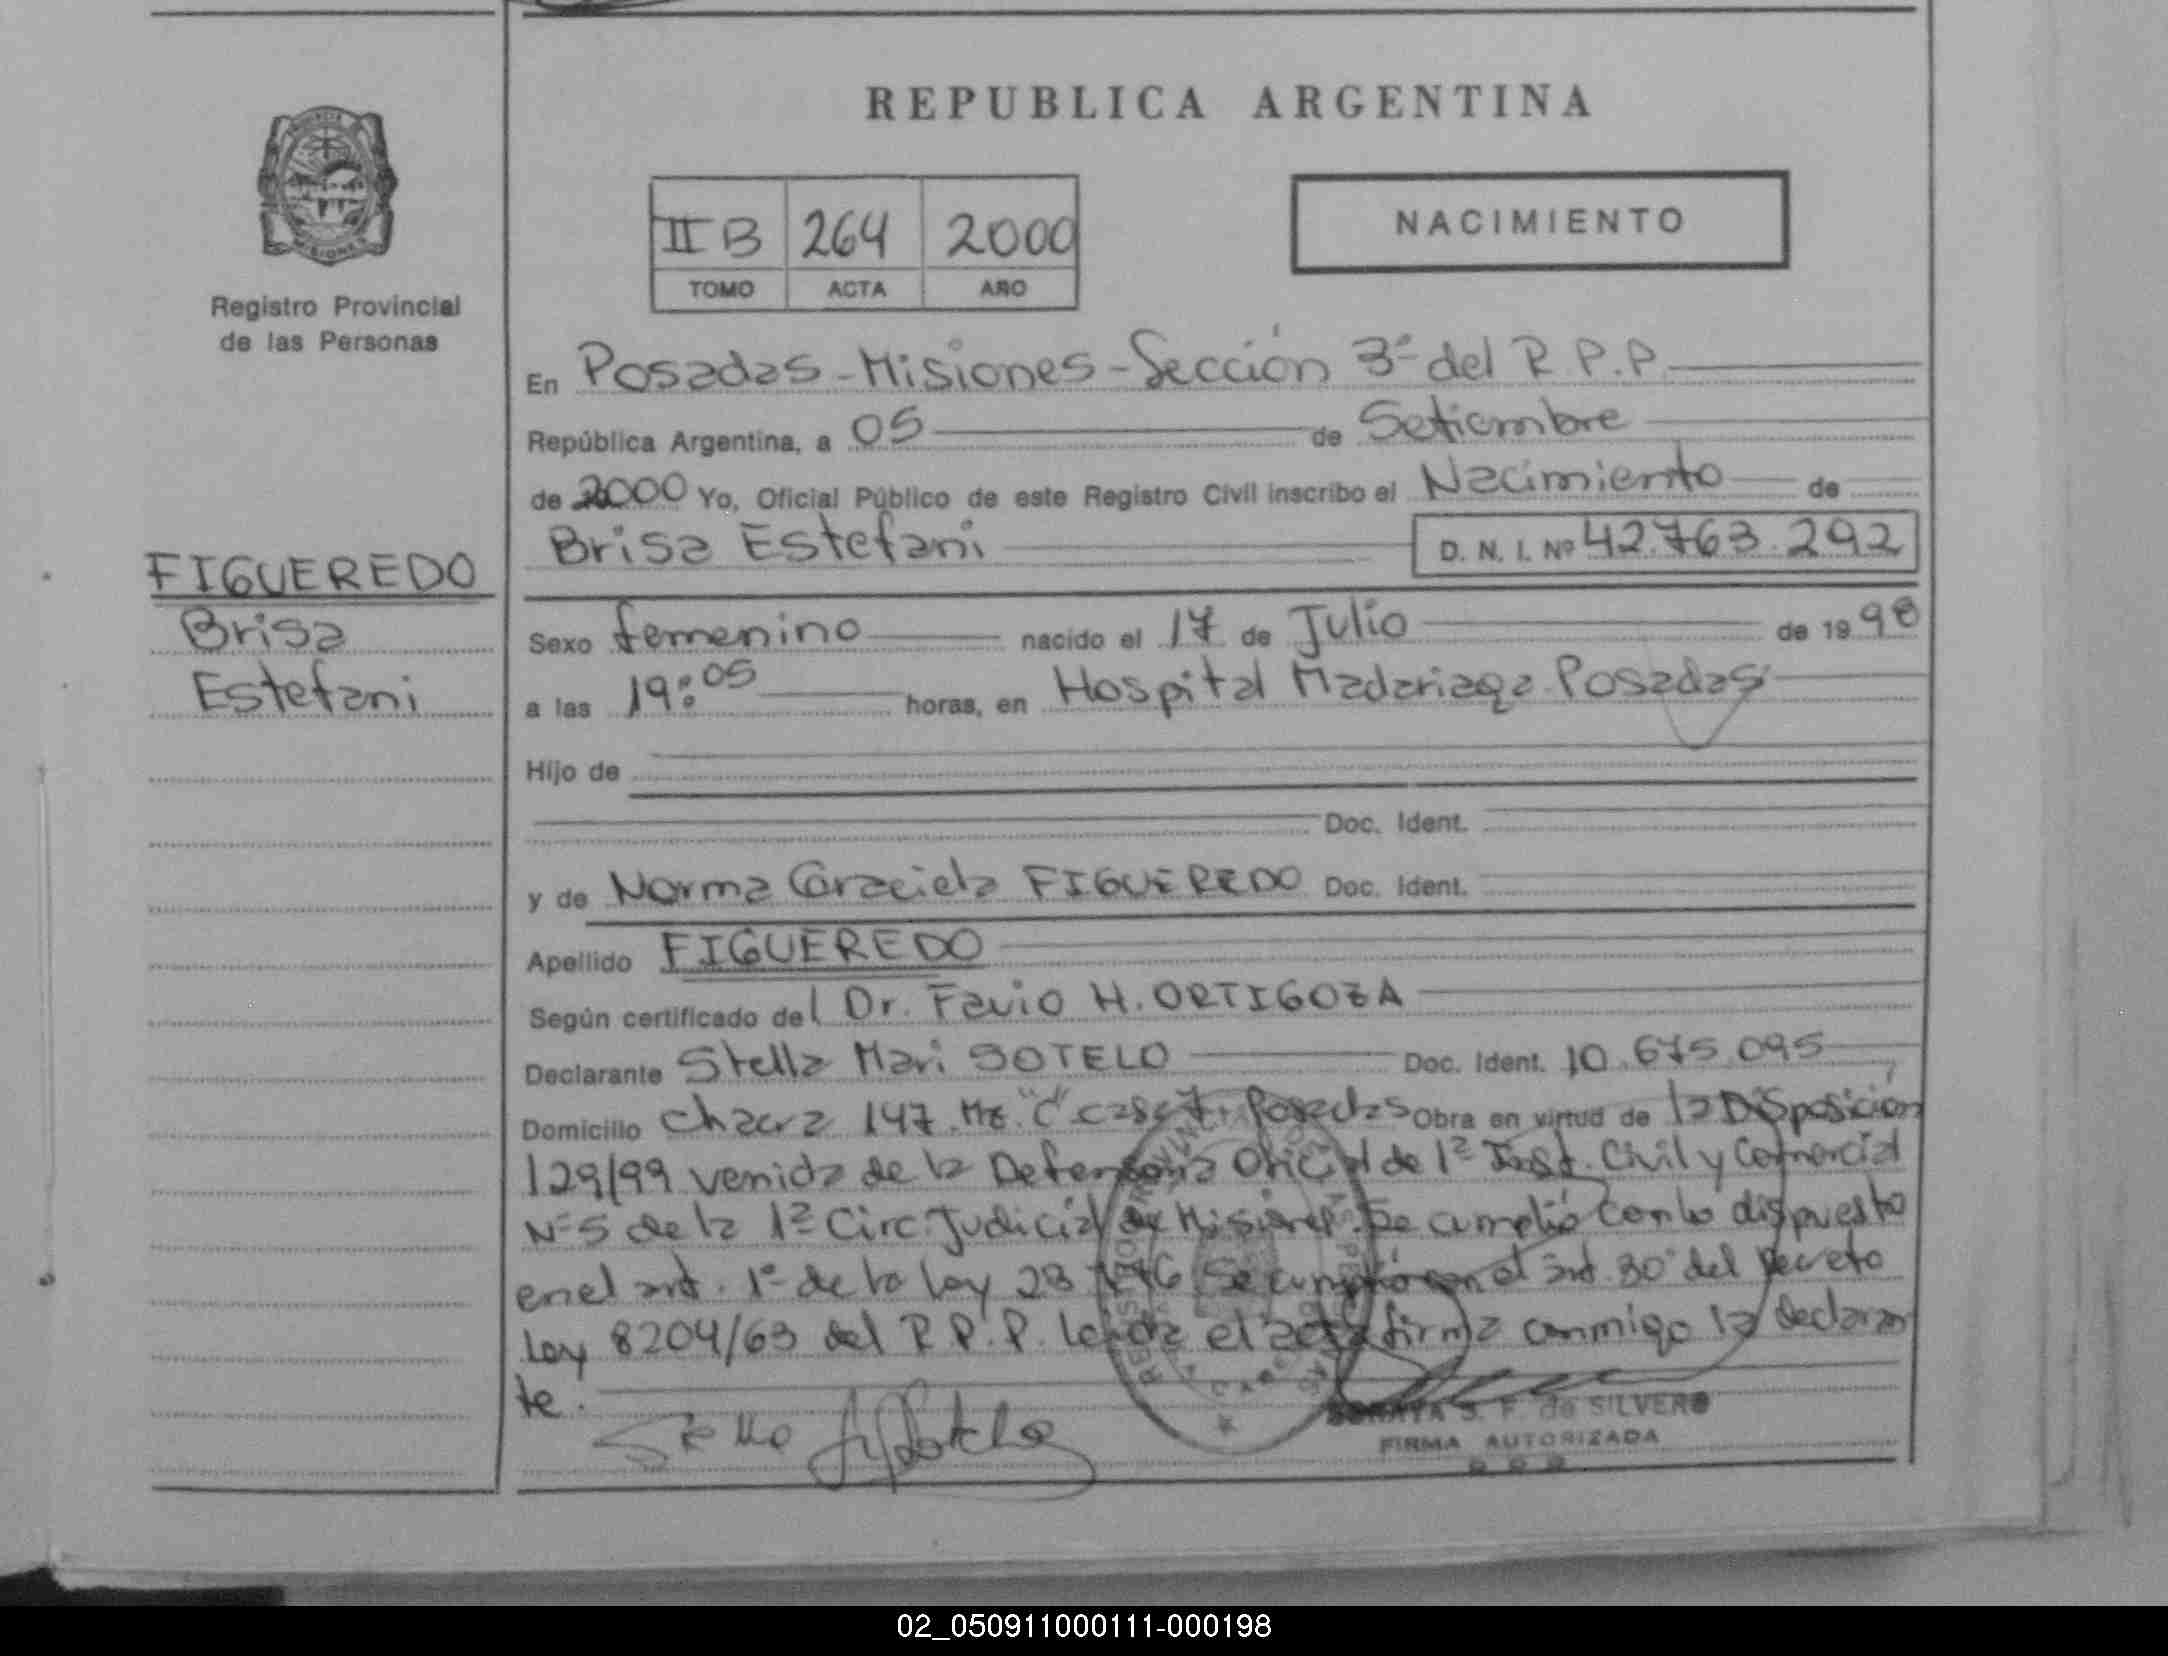 REPUBLICA ARGENTINA
NACIMIENTO
II B 264 2000
TOMO ACTA AÑO
Registro Provincial
de las Personas
FIGUEREDO
Brisa
Estefani
En Posadas - Misiones - Sección 3ª del R.P.P.
República Argentina, a 05 de Setiembre
de 2000 Yo, Oficial Público de este Registro Civil inscribo el Nacimiento de
Brisa Estefani D. N. I. Nº 42.763.292
Sexo femenino nacido el 17 de Julio de 1998
a las 19:05 horas, en Hospital Madariaga Posadas
Hijo de
Doc. Ident.
y de Norma Graciela FIGUEREDO Doc. Ident.
Apellido FIGUEREDO
Según certificado del Dr. Favio H. ORTIGOZA
Declarante Stella Mari SOTELO Doc. Ident. 10.675.095
Domicilio Chacra 147. Mz. "C" casa 7. Posadas Obra en virtud de la Disposición
129/99 venida de la Defensoria Oficial de 1ª Inst. Civil y Comercial
Nº 5 de la 1ª Circ. Judicial de Misiones. Se cumplió con lo dispuesto
en el art. 1º de la Ley 23 Se cumplió con el art. 30º del Decreto
Ley 8204/63 del R.P.P. Leida el acta firma conmigo la declaran
te.
S. F. de SILVERO
FIRMA AUTORIZADA
02_050911000111-000198